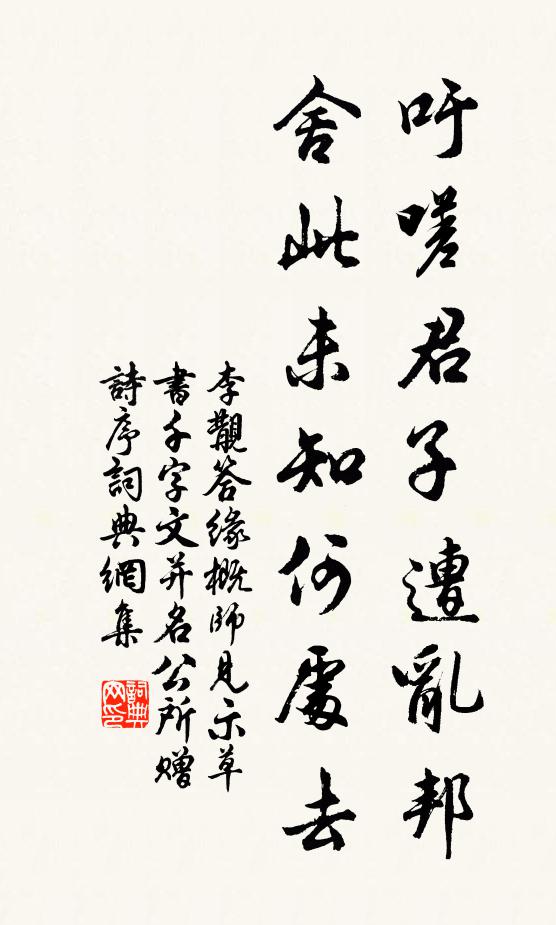 吁嗟君子遭亂邦
舍此未知何處去
李觀答緣概師見示草
書千字文并名公所贈
詩序詞典網集
詞典
网印